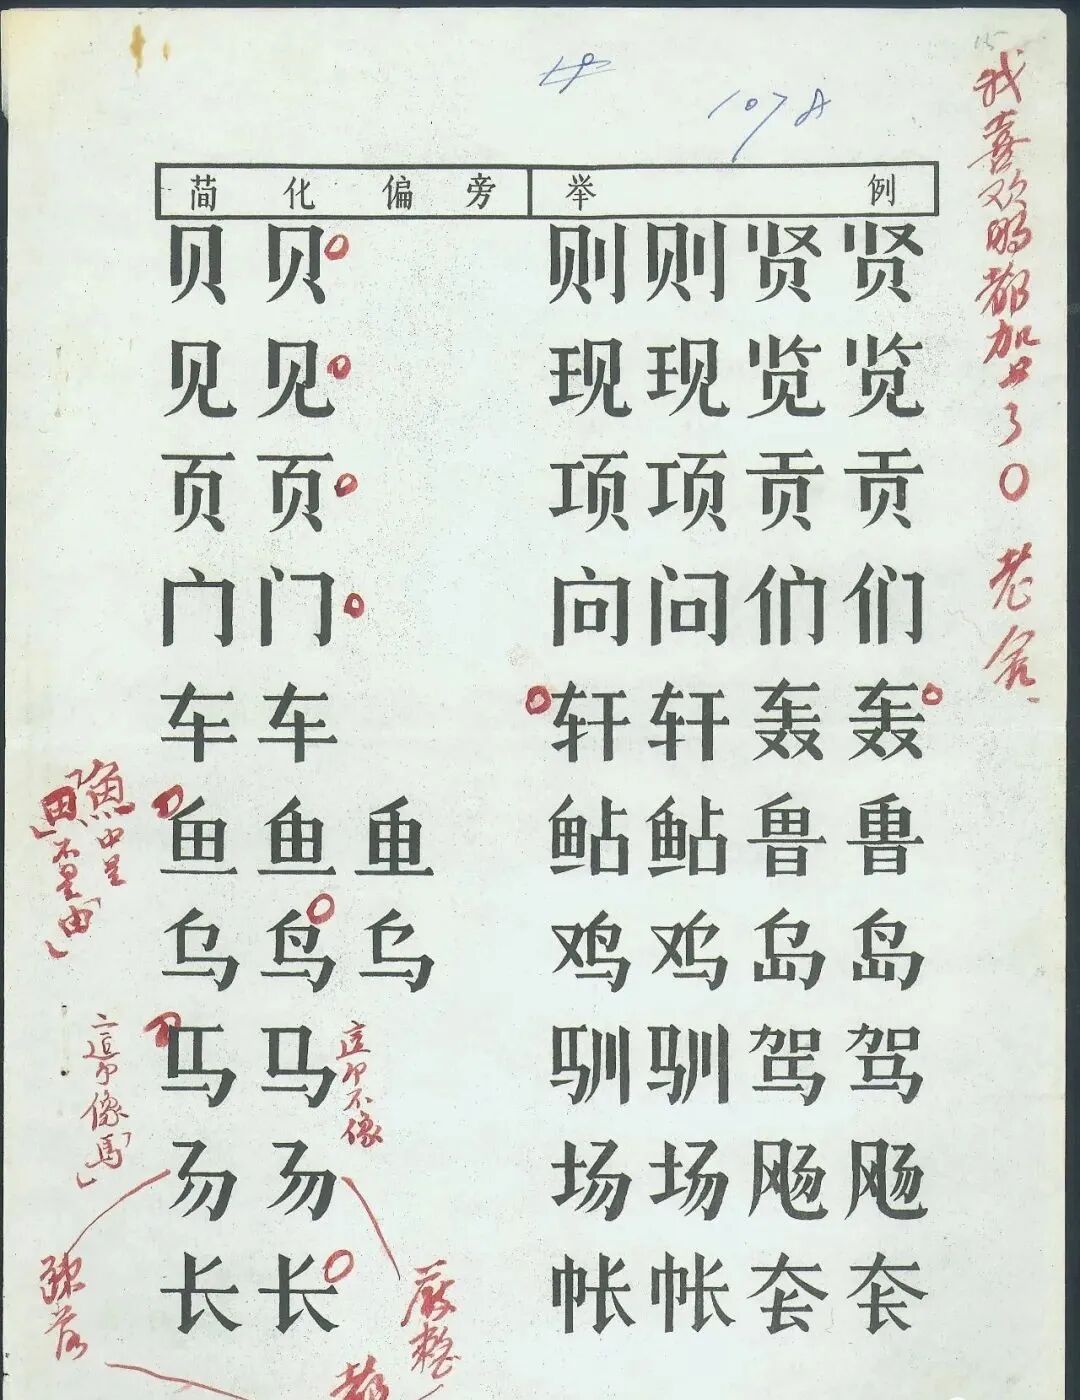 15
1078
简化偏旁 举例
我喜欢的都加上了〇 老舍
贝 贝 则 则 贤 贤
见 见 现 现 览 览
页 页 项 项 贡 贡
门 门 问 问 们 们
车 车 轩 轩 轰 轰
鱼 鱼 鲇 鲇 鲁 鲁
「魚」中是
「田」不是「由」
鸟 鸡 鸡 岛 岛
马 马 驯 驯 驾 驾
這個像「馬」
這個不像
场 场 飏 飏
长 长 帐 帐 套 套
疎落
嚴整